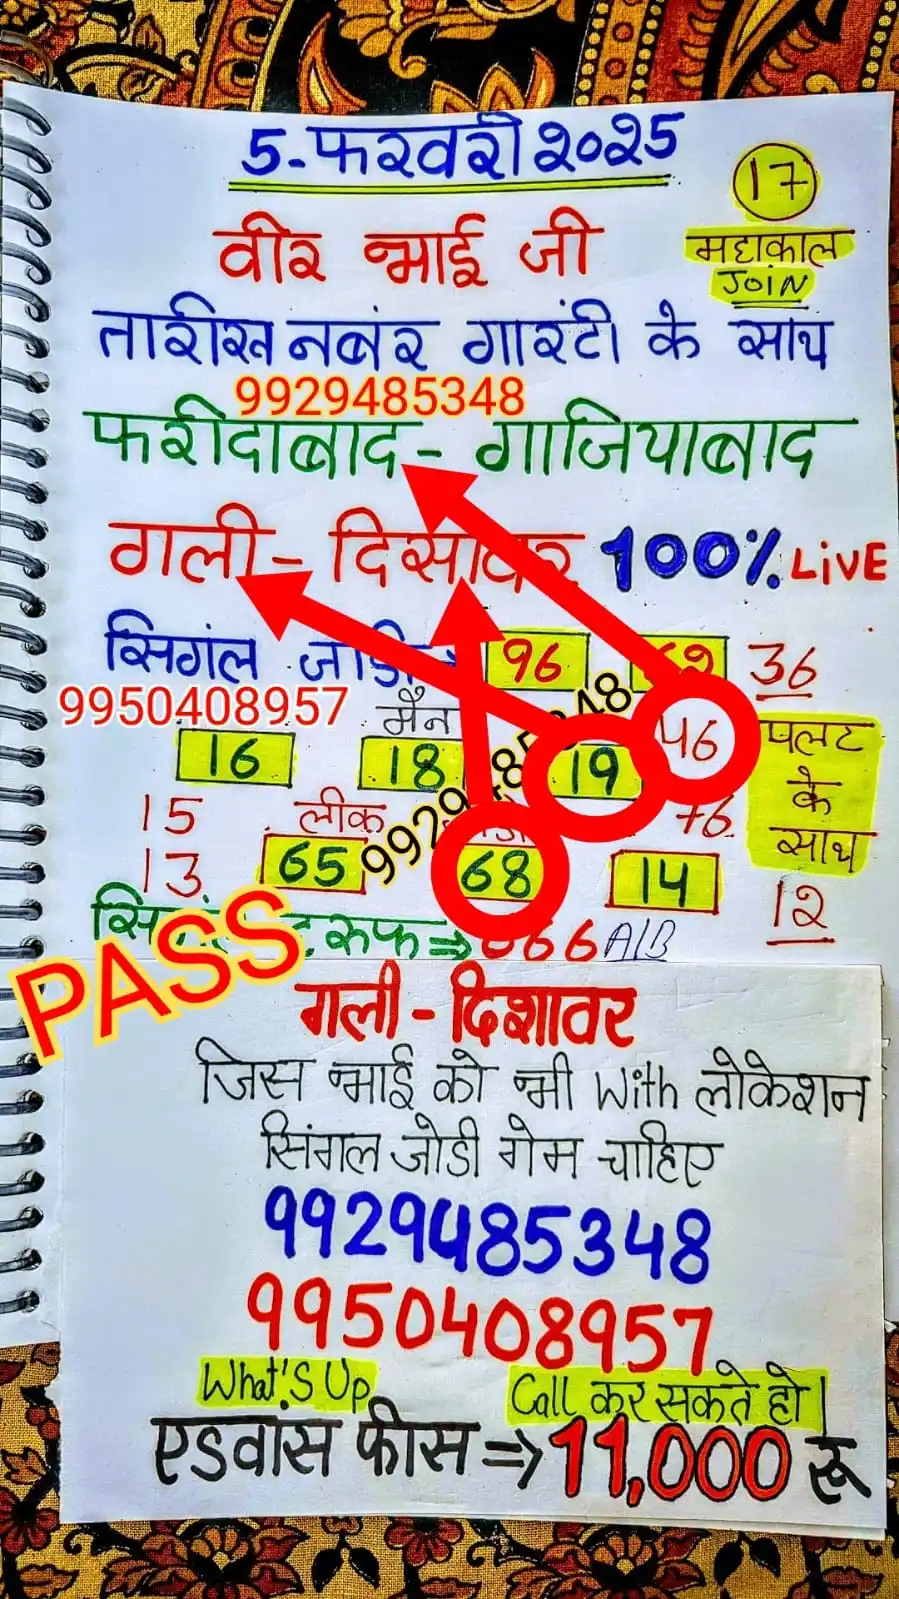 5-फरवरी २०२5
17
वीर भाई जी
महाकाल
JOIN
तारीख नबंर गारंटी के साथ
9929485348
फरीदाबाद - गाजियाबाद
गली - दिसावर 100% LiVE
सिगंल जोडी 96 36
9950407957
मैन
16 18 19 46 पलट
के
साथ
15 लीक 76
9929485348
13 65 68 14 12
रुफ ⇒ 666 A/B
PASS
गली - दिशावर
जिस भाई को भी With लोकेशन
सिंगल जोडी गेम चाहिए
9929485348
9950408957
What'S Up Call कर सकते हो।
एडवांस फीस ⇒ 11,000 रू